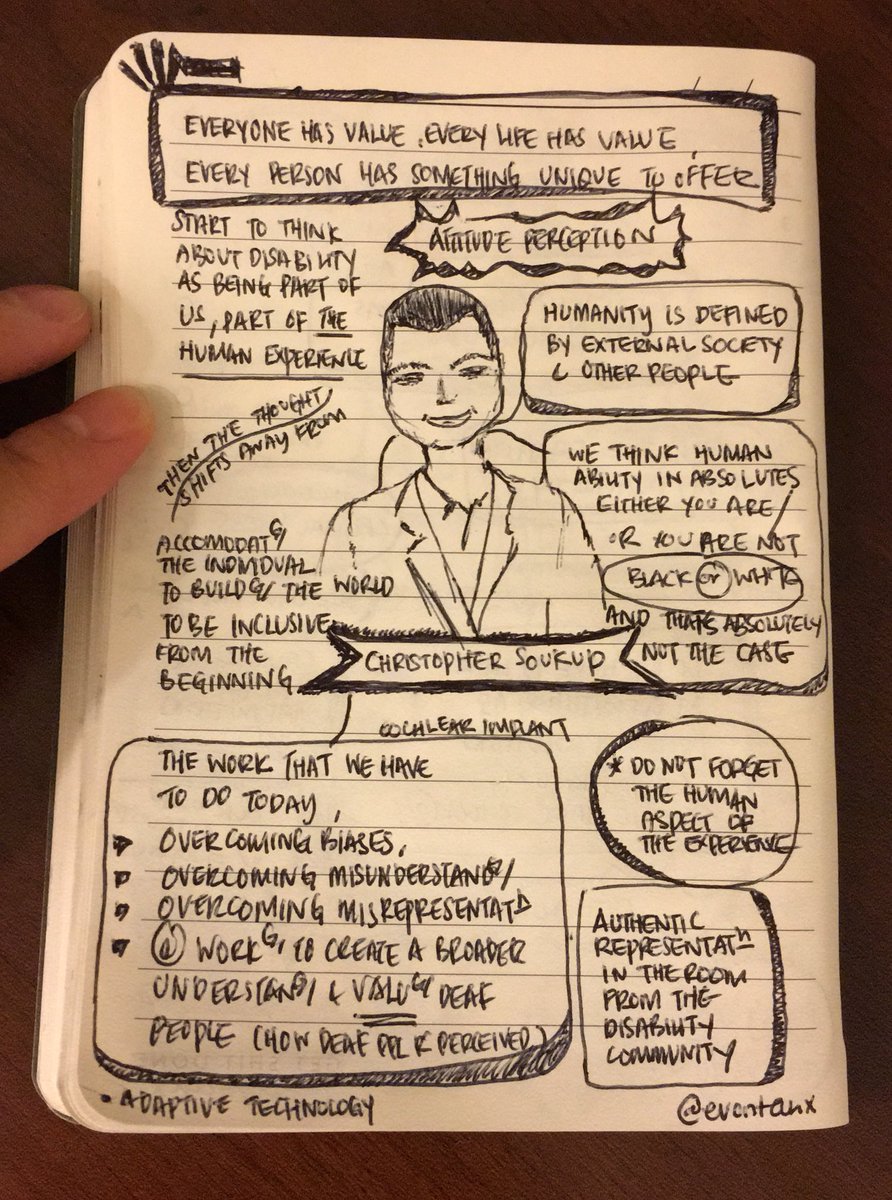 EVERYONE HAS VALUE. EVERY LIFE HAS VALUE,
EVERY PERSON HAS SOMETHING UNIQUE TO OFFER
ATTITUDE PERCEPTION
START TO THINK
ABOUT DISABILITY
AS BEING PART OF
US, PART OF THE
HUMAN EXPERIENCE
THEN THE THOUGHT
SHIFTS AWAY FROM
ACCOMODATG/
THE INDIVIDUAL
TO BUILDG/ THE WORLD
TO BE INCLUSIVE
FROM THE
BEGINNING
HUMANITY IS DEFINED
BY EXTERNAL SOCIETY
& OTHER PEOPLE
WE THINK HUMAN
ABILITY IN ABSOLUTES
EITHER YOU ARE/
OR YOU ARE NOT
BLACK OR WHITE
AND THATS ABSOLUTELY
NOT THE CASE
CHRISTOPHER SOUKUP
COCHLEAR IMPLANT
THE WORK THAT WE HAVE
TO DO TODAY,
OVERCOMING BIASES,
OVERCOMING MISUNDERSTANDG/
OVERCOMING MISREPRESENTATN
WORKG, TO CREATE A BROADER
UNDERSTANDG/ & VALUG/ DEAF
PEOPLE (HOW DEAF PPL R PERCEIVED)
* DO NOT FORGET
THE HUMAN
ASPECT OF
THE EXPERIENCE
AUTHENTIC
REPRESENTATN
IN THE ROOM
FROM THE
DISABILITY
COMMUNITY
• ADAPTIVE TECHNOLOGY
@evontanx